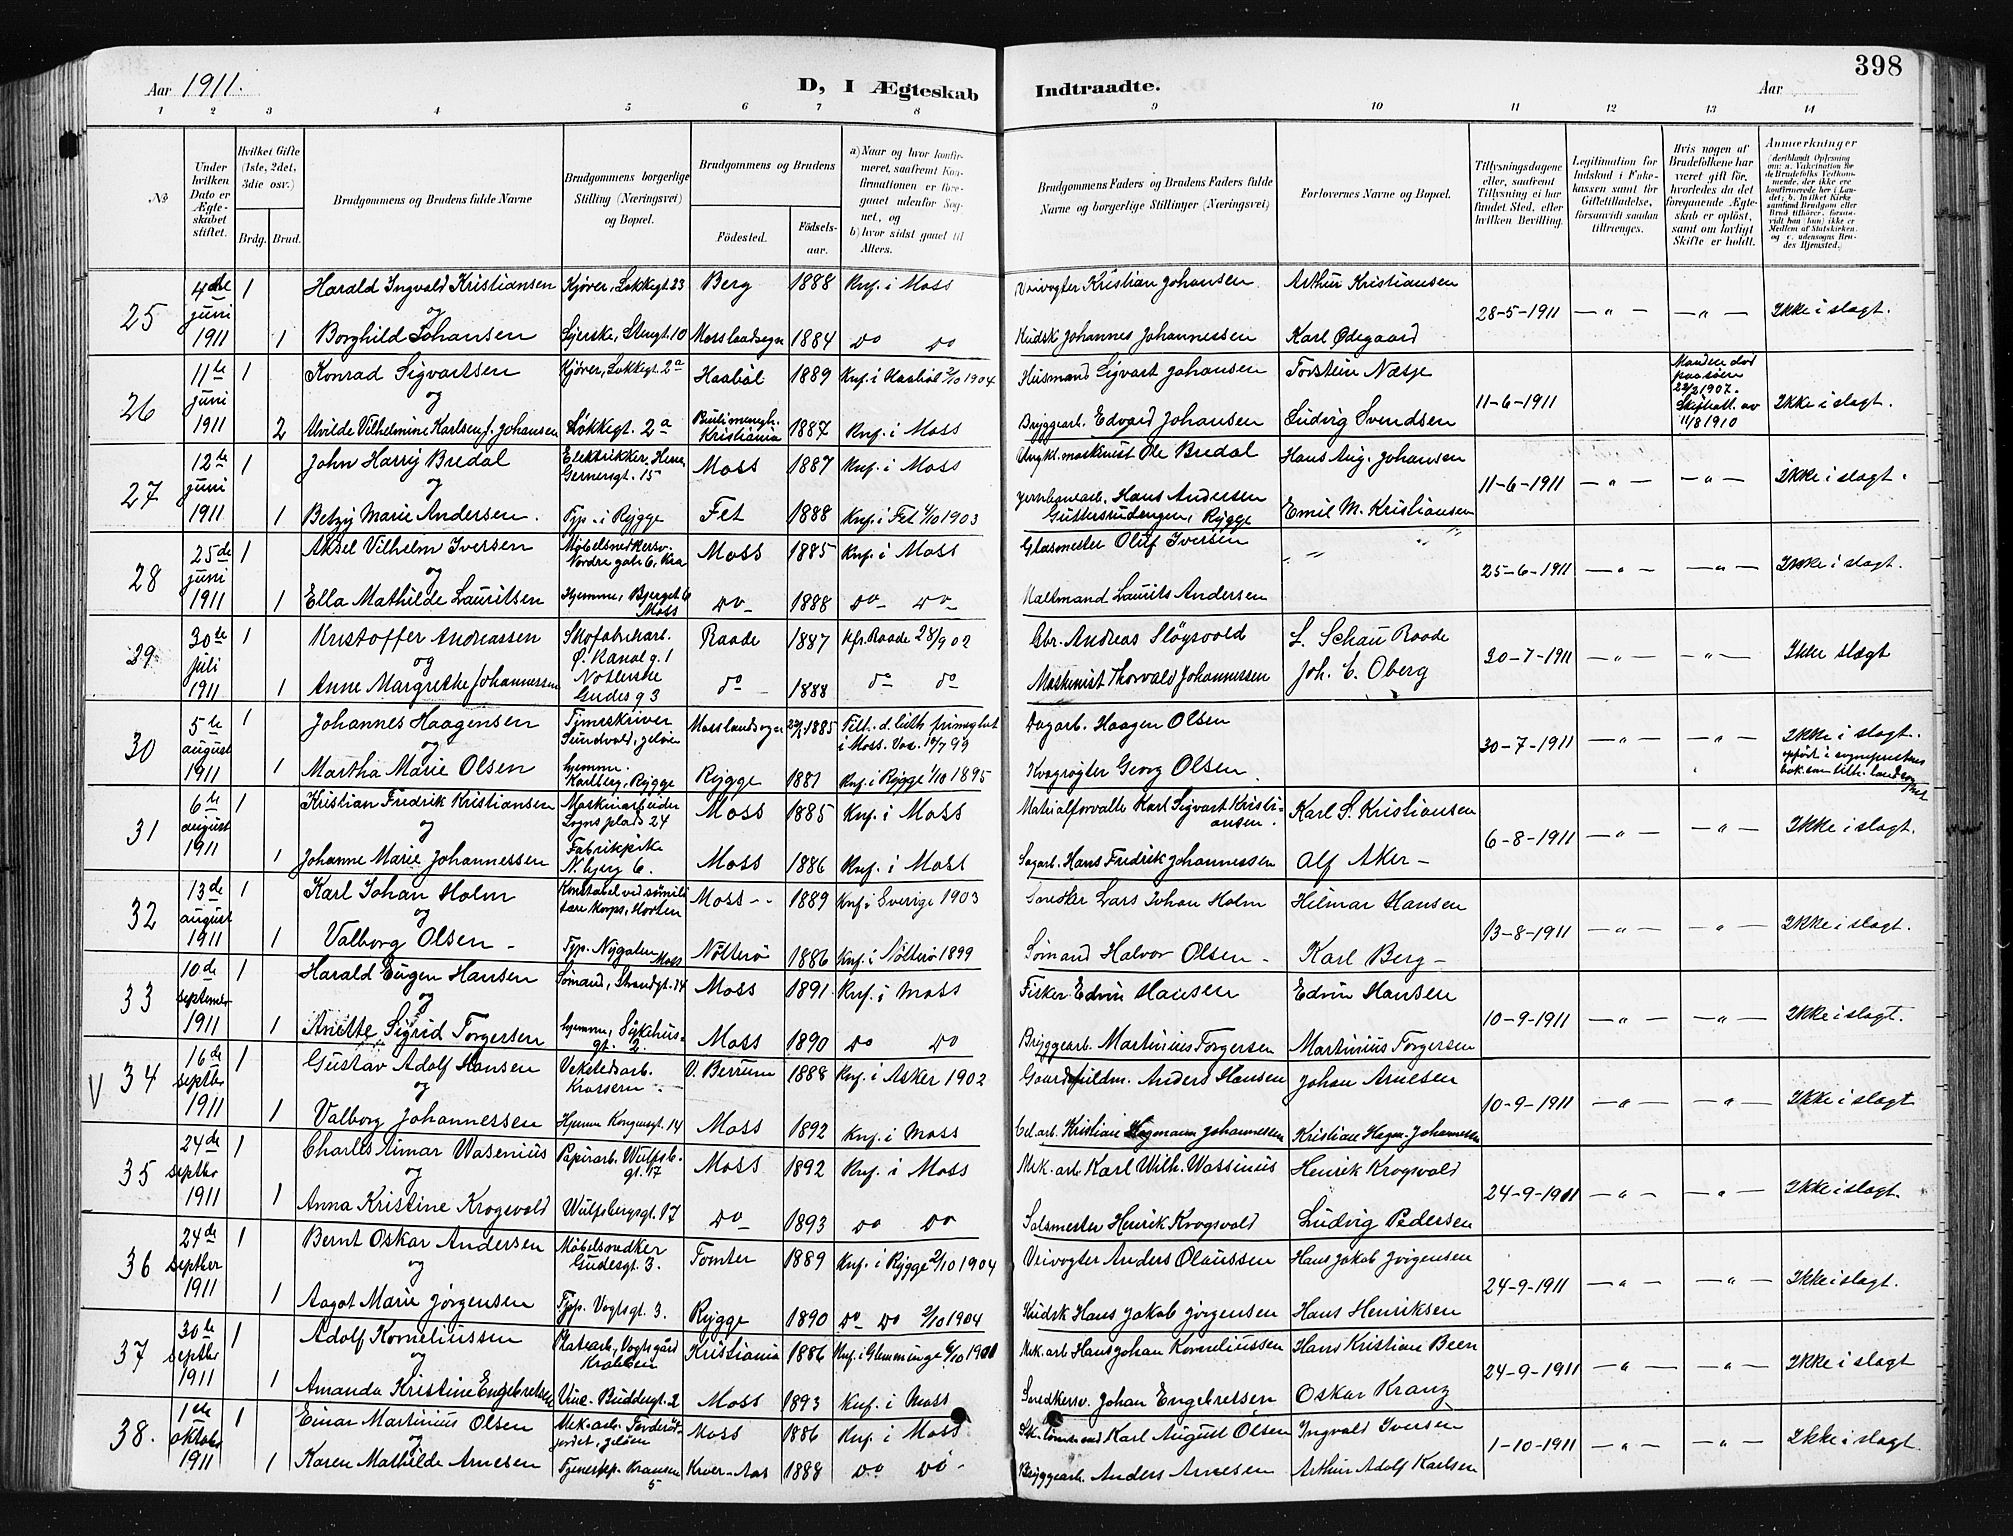 398
Aar 1911.
D, I Ægteskab Indtraadte.
Aar
1 2 3 4 5 6 7 8 9 10 11 12 13 14
No
Under hvilken Dato er Ægteskabet stiftet.
Hvilket Gifte (1ste, 2det, 3die osv.)
Brdg. Brud.
Brudgommens og Brudens fulde Navne
Brudgommens borgerlige Stilling (Næringsvei) og Bopæl.
Brudgommens og Brudens
Fødested.
Fødselsaar.
a) Naar og hvor konfirmeret, saafremt Konfirmationen er foregaaet udenfor Sognet, og
b) hvor sidst gaaet til Alters.
Brudgommens Faders og Brudens Faders fulde Navne og borgerlige Stillinger (Næringsvei)
Forlovernes Navne og Bopæl.
Tillysningsdagene eller, saafremt Tillysning ei har fundet Sted, efter hvilken Bevilling.
Legitimation for Indskud i Enkekassen samt for Giftetilladelse, forsaavidt saadan tiltrænges.
Hvis nogen af Brudefolkene har været gift før, hvorledes da det foregaaende Ægteskab er opløst, samt om lovligt Skifte er holdt.
Anmærkninger
25 4de juni 1911 1 Harald Ingvald Kristiansen Kjører, Løkkegt. 23 Berg 1888 Knf. i Moss Veivogter Kristian Johansen Arthur Kristiansen 28-5-1911 — " — — " — Ikke i slægt.
og
1 Borghild Johansen Syerske, Stengt. 10 Moss landsogn 1884 Do Do Kudsk Johannes Johannessen Karl Ødegaard
26 11te juni 1911 1 Konrad Sigvartsen Kjører, Løkkegt. 2a Haabøl 1889 Knf. i Haabøl 2/10 1904 Husmand Sigvart Johansen Torstein Næsje 11-6-1911 Manden død 1907. Skifteatt. av 11/8 1910 Ikke i slægt.
og
2 Alvilde Vilhelmine Karlsen f. Johansen Løkkegt. 2a Kristiania 1887 Knf. i Moss Bryggearb. Edvard Johansen Ludvig Svendsen
27 12te juni 1911 1 John Harry Bredal Elektrikker, Henr. Gernersgt. 15 Moss 1887 Knf. i Moss maskinist Ole Bredal Hans Aug. Johansen 11-6-1911 — " — — " — Ikke i slægt.
og
1 Betzy Marie Andersen. Typ. i Rygge Fet 1888 Knf. i Fet 4/10 1903 Jernbanearb. Hans Andersen Guttersrudengen, Rygge Emil M. Kristiansen
28 25de juni 1911 1 Aksel Vilhelm Iversen Møbelsnedkersv. Nordre gate 6, Kra Moss 1885 Knf. i Moss Glasmester Oluf Iversen " " 25-6-1911 — " — — " — Ikke i slægt.
og
1 Ella Mathilde Lauritsen Hjemme, Bjerget 6 Moss Do 1888 Do Do Maltmand Laurits Andersen
29 30te juli 1911 1 Kristoffer Andreassen Skofabrikarb. Ø. Kanal g. 1 Raade 1887 Kfr. Raade 28/9 02 Gbr. Andreas Sløysvold L. Schau Raade 30-7-1911 — " — — " — Ikke slægt
og
1 Anne Margrethe Johannessen Gudes g 3 do 1888 do do Maskinist Thorvald Johannessen Joh. C. Oberg
30 5te august 1911 1 Johannes Haagensen Sundvold, Jeløen Moss landsogn 1885 Tilh. d. luth. frimenighet i Moss. Dagarb. Haagen Olsen 30-7-1911 — " — — " — Ikke i slægt.
og
1 Martha Marie Olsen hjemme. Karlberg, Rygge Rygge 1881 Knf. i Rygge 1/10 1895 Kvægrøgter Georg Olsen
31 6te august 1911 1 Kristian Fredrik Kristiansen Maskinarbeider Logns plads 24 Moss 1885 Knf. i Moss Materialforvalter Karl Sigvart Kristiansen. Karl S. Kristiansen 6-8-1911 — " — — " — Ikke i slægt.
og
1 Johanne Marie Johannessen Fabrikpike N. bjerg 6. Moss 1886 Knf. i Moss Sagarb. Hans Fredrik Johannessen Alf Aker
32 13de august 1911 1 Karl Johan Holm Horten Moss 1889 Knf. i Sverige 1903 Snedker Lars Johan Holm Hilmar Hansen 13-8-1911 — " — — " — Ikke i slægt.
og
1 Valborg Olsen Typ. Nygaten Moss Nøtterø 1886 Knf. i Nøtterø 1899 Sømand Halvor Olsen Karl Berg
33 10de september 1911 1 Harald Eugen Hansen Sømand, Strandgt. 14 Moss 1891 Knf. i Moss Fisker Edvin Hansen Edvin Hansen 10-9-1911 — " — — " — Ikke i slægt.
og
1 Anette Sigrid Torgersen hjemme, Sykehusgt. 2 Moss 1890 Do Do Bryggearb. Martinius Torgersen Martinius Torgersen
V 34 16de septbr 1911 1 Gustav Adolf Hansen V. Berrum 1888 Knf. i Asker 1902 Anders Hansen Johan Arnesen 10-9-1911 — " — — " — Ikke i slægt
og
1 Valborg Johannessen Hjemme Kongensgt. 14 Moss 1892 Knf. i Moss Cel. arb. Kristian Hagemann Johannessen Kristian Hagm. Johannessen
35 24de septbr 1911 1 Charles Aimar Wasenius Papirarb. Wulfsb. gt. 17 Moss 1892 Knf. i Moss Mek. arb. Karl Wilh. Wassinius Henrik Krogsvold 24-9-1911 — " — — " — Ikke i slægt.
og
1 Anna Kristine Krogsvold Wulfsbergsgt. 17 Do 1893 Do Do Salsmester Henrik Krogsvold Ludvig Pedersen
36 24de septber 1911 1 Bernt Oskar Andersen Møbelsnedker Gudesgt. 3. Tomter 1889 Knf. i Rygge 2/10 1904 Veivogter Anders Olaussen Hans Jakob Jørgensen 24-9-1911 — " — — " — Ikke i slægt.
og
1 Aagot Marie Jørgensen Typ. Vogtsgt. 3. Rygge 1890 Do Do 2/10 1904 Kudsk Hans Jakob Jørgensen Hans Henriksen
37 30te septbr 1911 1 Adolf Korneliussen Kristiania 1886 Knf. i Glemminge 6/10 1901 Mek. arb Hans Johan Korneliussen Hans Kristian Been 24-9-1911 — " — — " — Ikke i slægt
og
1 Amanda Kristine Engebretsen Buddegt. 2 Moss 1893 Knf. i Moss Snedkersv. Johan Engebretsen Oskar Kranz
38. 1ste oktober 1911 1 Einar Martinius Olsen Mek. arb. Jeløen Moss 1886 Knf. i Moss Karl August Olsen Ingvald Iversen 1-10-1911 — " — — " — Ikke i slægt.
og
1 Karen Mathilde Arnesen Tjenestep. Kransen 5 Kroer - Aas 1888 Do Do Bryggearb. Anders Arnesen Arthur Adolf Karlsen